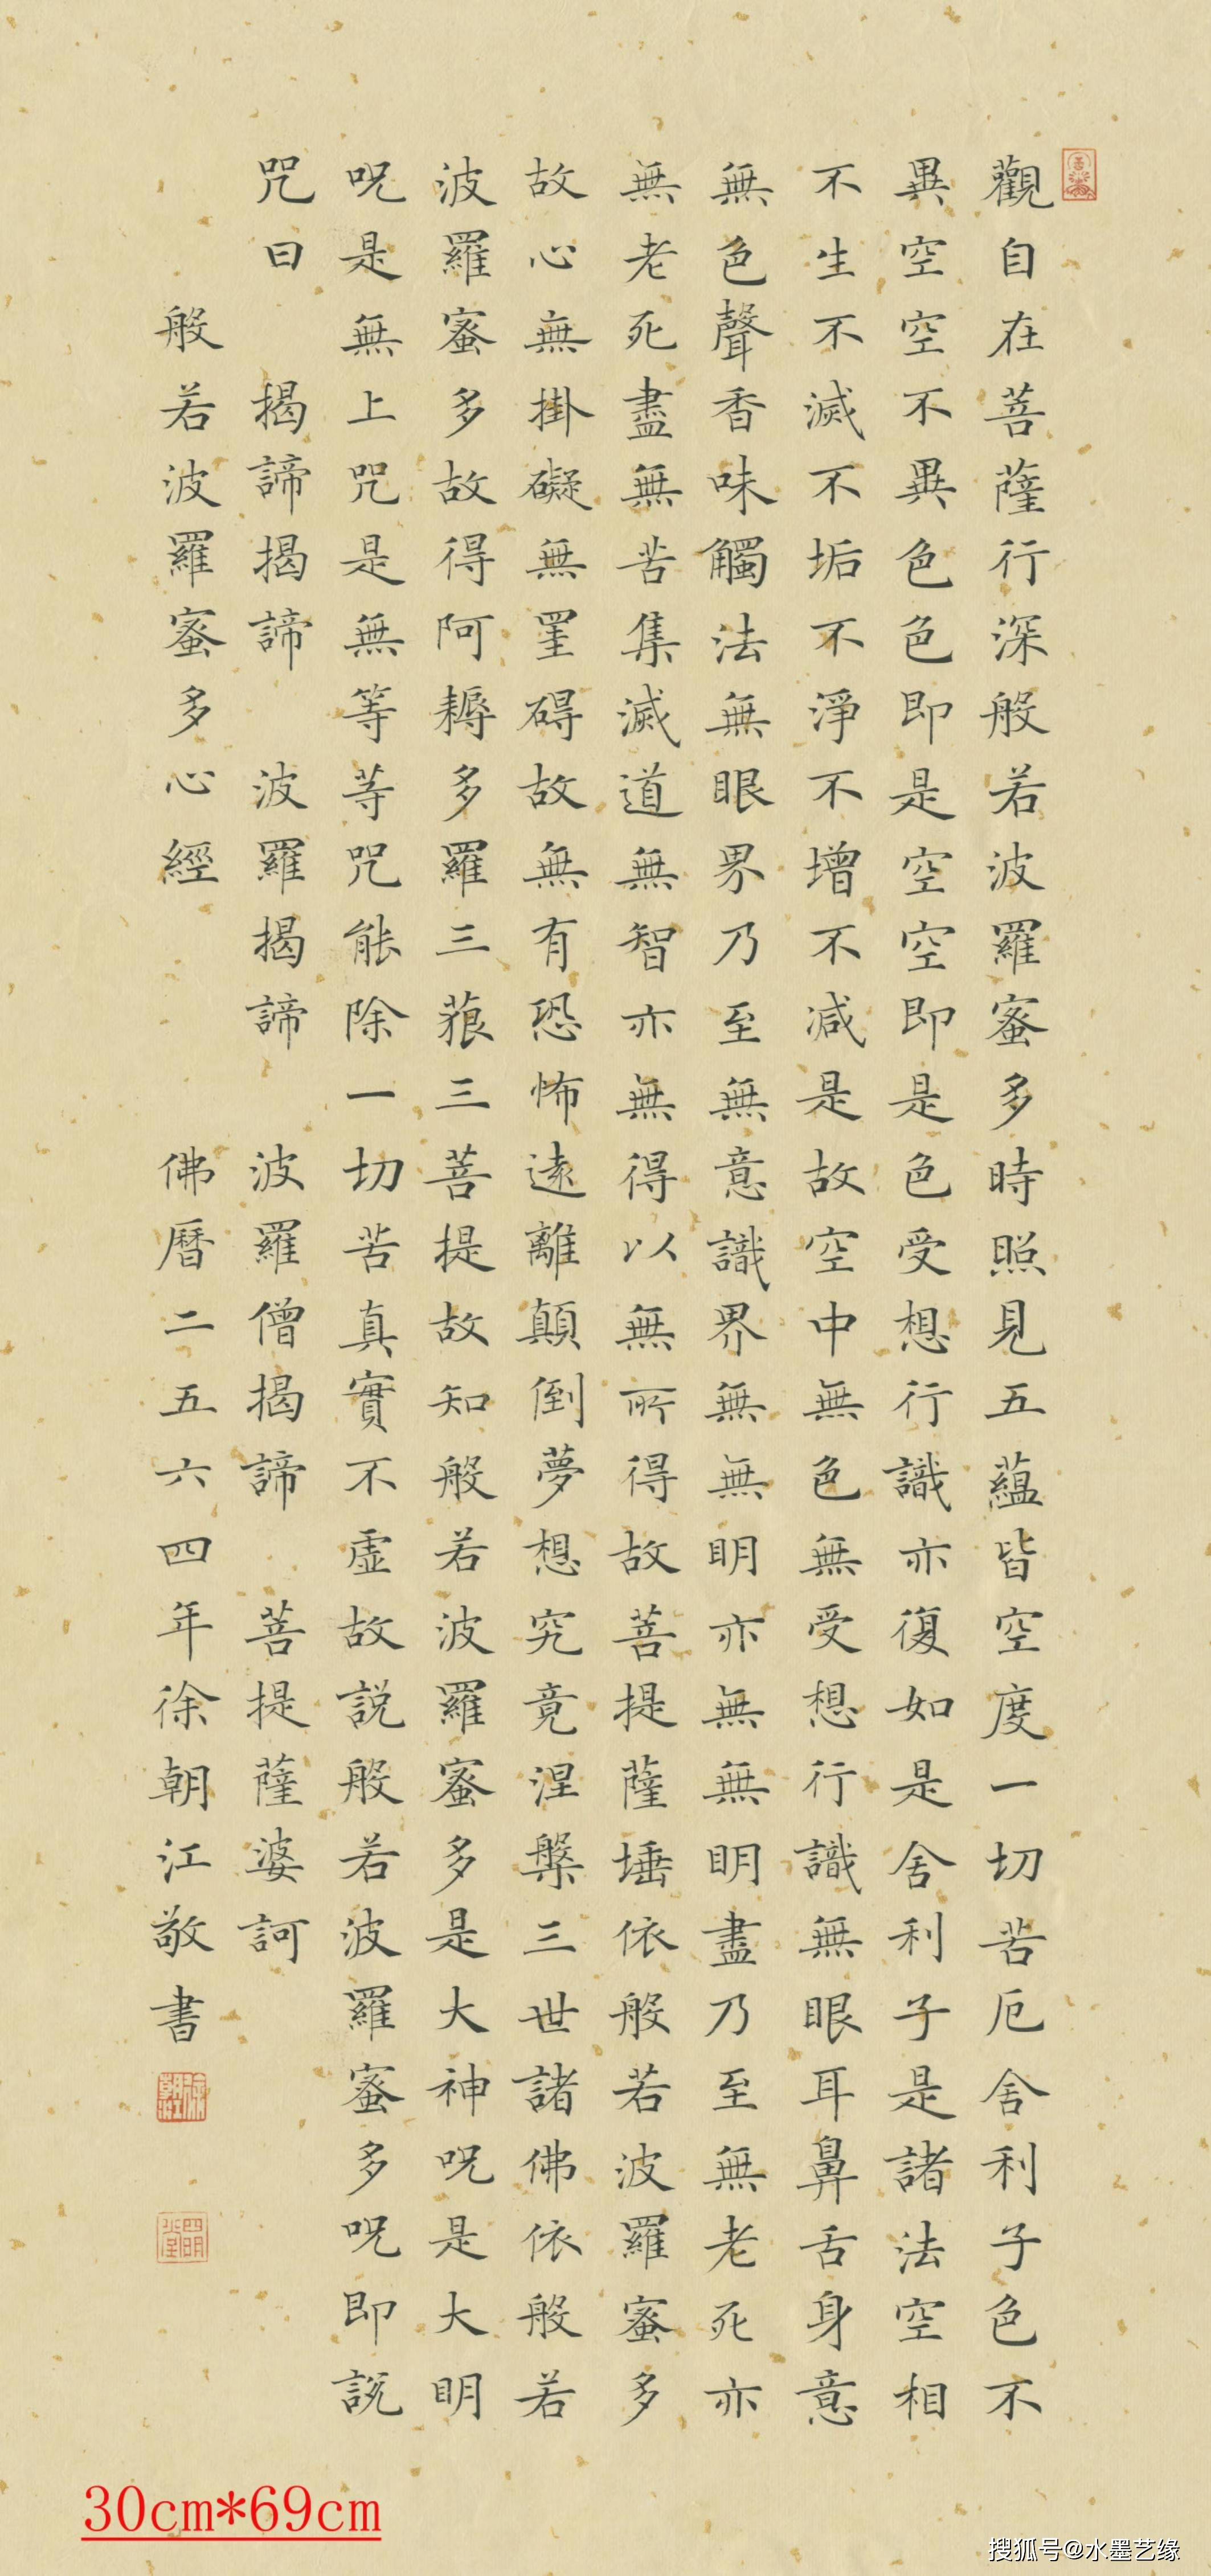 觀自在菩薩行深般若波羅蜜多時照見五蘊皆空度一切苦厄舍利子色不
異空空不異色色即是空空即是色受想行識亦復如是舍利子是諸法空相
不生不滅不垢不淨不增不減是故空中無色無受想行識無眼耳鼻舌身意
無色聲香味觸法無眼界乃至無意識界無無明亦無無明盡乃至無老死亦
無老死盡無苦集滅道無智亦無得以無所得故菩提薩埵依般若波羅蜜多
故心無掛礙無罣碍故無有恐怖遠離顛倒夢想究竟涅槃三世諸佛依般若
波羅蜜多故得阿耨多羅三藐三菩提故知般若波羅蜜多是大神呪是大明
呪是無上咒是無等等咒能除一切苦真實不虛故説般若波羅蜜多呪即説
咒曰 揭諦揭諦 波羅揭諦 波羅僧揭諦 菩提薩婆訶
般若波羅蜜多心經 佛曆二五六四年徐朝江敬書
30cm*69cm
搜狐号@水墨艺缘